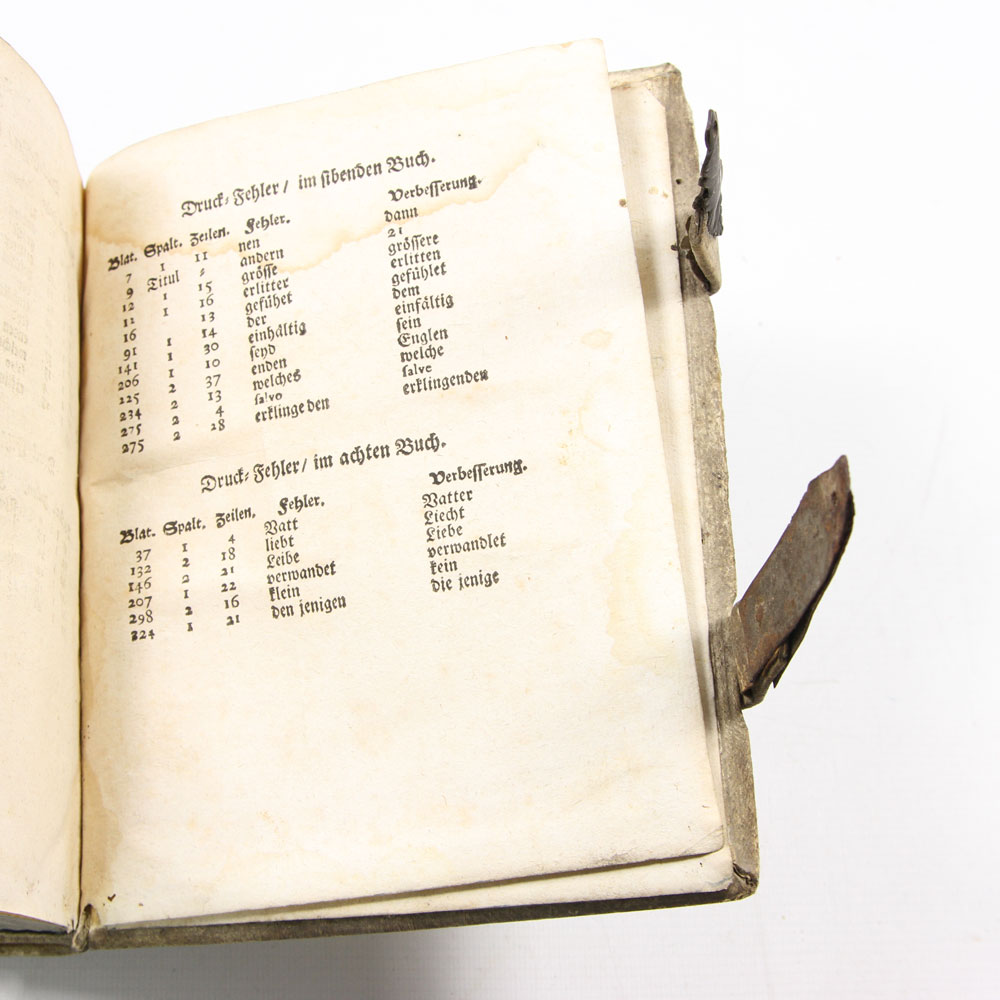 Druck-Fehler / im sibenden Buch.
Blat. Spalt. Zeilen. Fehler. Verbesserung.
7 1 11 nen dann
9 Titul : andern 21
12 1 15 grösse grössere
12 1 16 erlitter erlitten
16 13 gefühet gefühlet
91 1 14 der dem
141 30 einhältig einfältig
206 1 10 seyd sein
225 2 37 enden Englen
234 2 13 welches welche
275 2 4 salvo salve
275 2 28 erklingeden erklingenden
Druck-Fehler / im achten Buch.
Blat. Spalt. Zeilen. Fehler. Verbesserung.
37 1 4 Vatt Vatter
132 2 18 liebt Liecht
146 2 21 Leibe Liebe
207 1 22 verwandet verwandlet
298 2 16 klein kein
324 1 21 den jenigen die jenige